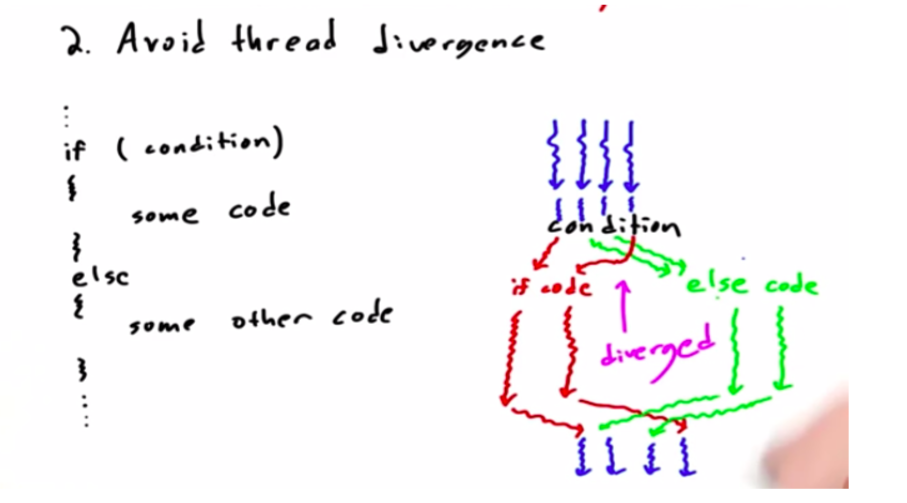 2. Avoid thread divergence
...
if (condition)
{
some code
}
else
{
some other code
}
...
condition
if code
else code
diverged